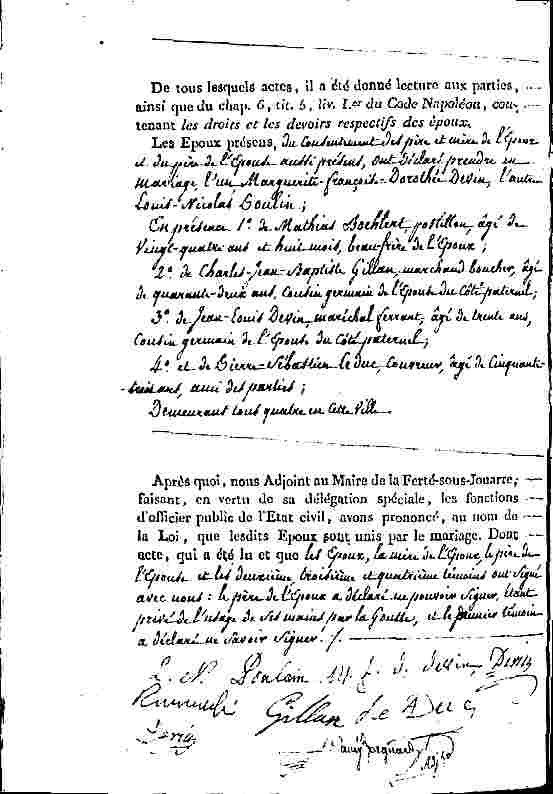 De tous lesquels actes, il a été donné lecture aux parties,
ainsi que du chap. 6, tit. 5, liv. I.er du Code Napoléon, con-
tenant les droits et les devoirs respectifs des époux.
Les Epoux présens, du Consentement des père et mère de l'Epoux
et du père de l'Epouse aussi présent, ont déclaré prendre en
mariage l'un Marguerite-françoise-Dorothée Devin, l'autre
Louis-Nicolas Poulin ;
En présence 1º. de Mathias Bochlert, postillon, âgé de
Vingt-quatre ans et huit mois, beau-frère de l'Epoux ;
2º. de Charles-Jean-Baptiste Gillan, marchand boucher, âgé
de quarante-deux ans, Cousin germain de l'Epouse du Côté paternel ;
3º. de Jean-Louis Devin, maréchal ferrant, âgé de trente ans,
Cousin germain de l'Epouse du Côté paternel ;
4º. et de Pierre-Sébastien Le duc, Couvreur, âgé de Cinquante-
trois ans, ami des parties ;
Demeurant tous quatre en Cette Ville.
Après quoi, nous Adjoint au Maire de la Ferté-sous-Jouarre,
faisant, en vertu de sa délégation spéciale, les fonctions
d'officier public de l'Etat civil, avons prononcé, au nom de
la Loi, que lesdits Epoux sont unis par le mariage. Dont
acte, qui a été lu et que les Epoux, la mère de l'Epoux, le père de
l'Epouse et les deuxième troisième et quatrième témoins ont Signé
avec nous : le père de l'Epoux a déclaré ne pouvoir Signer, étant
privé de l'usage de Ses mains par la Goutte, et le premier témoin
a déclaré ne Savoir Signer ./.
L. N. Poulain M. f. d. devin Devin
Gillan Le Duc
Devin
Adjt